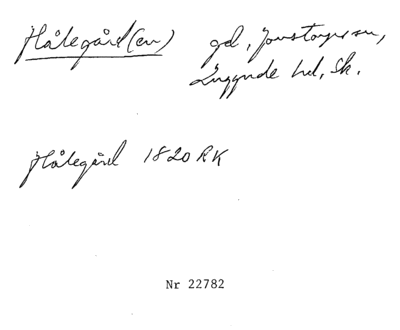 Hålegård(en) gd, Jonstorps sn,
Luggude hd, Sk.
Hålegård 1820 RK
Nr 22782